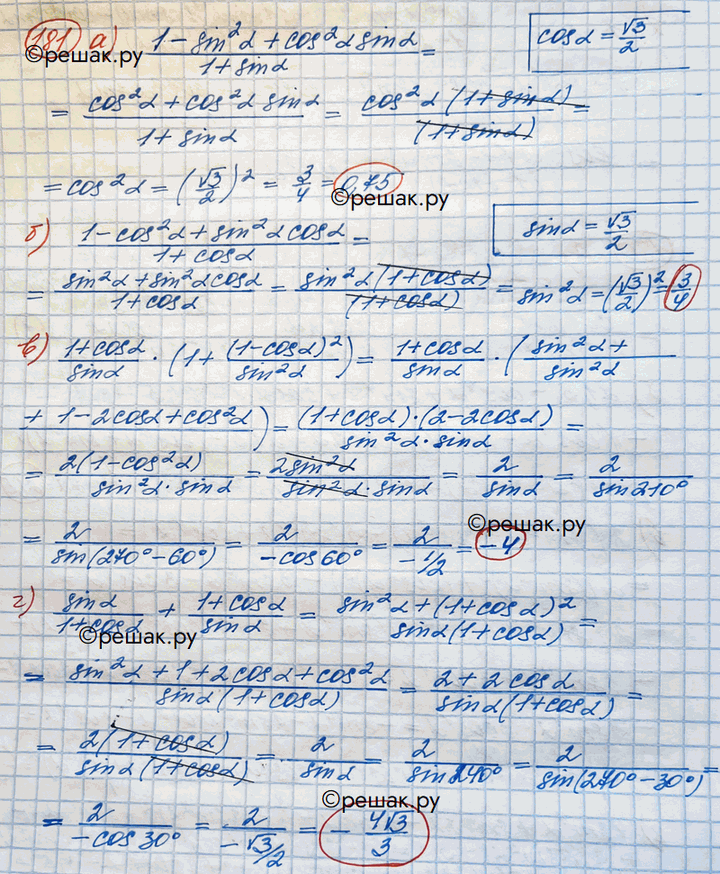 181 а) (1 - sin²α + cos²α sinα)/(1 + sinα) =
cosα = √3/2
©решак.ру
= (cos²α + cos²α sinα)/(1 + sinα) = (cos²α (1 + sinα))/((1 + sinα)) =
= cos²α = (√3/2)² = 3/4 = 0,75
©решак.ру
б) (1 - cos²α + sin²α cosα)/(1 + cosα) =
sinα = √3/2
= (sin²α + sin²α cosα)/(1 + cosα) = (sin²α (1 + cosα))/((1 + cosα)) = sin²α = (√3/2)² = 3/4
в) (1 + cosα)/sinα · (1 + (1 - cosα)²/sin²α) = (1 + cosα)/sinα · (sin²α +/sin²α
+ 1 - 2cosα + cos²α) = ((1 + cosα) · (2 - 2cosα))/(sin²α · sinα) =
= 2(1 - cos²α)/(sin²α · sinα) = 2sin²α/(sin²α · sinα) = 2/sinα = 2/sin210°
©решак.ру
= 2/sin(270° - 60°) = 2/-cos60° = 2/-1/2 = -4
г) sinα/(1 + cosα) + (1 + cosα)/sinα = (sin²α + (1 + cosα)²)/(sinα(1 + cosα)) =
©решак.ру
= (sin²α + 1 + 2cosα + cos²α)/(sinα(1 + cosα)) = (2 + 2cosα)/(sinα(1 + cosα)) =
= 2(1 + cosα)/(sinα(1 + cosα)) = 2/sinα = 2/sin240° = 2/sin(270° - 30°) =
©решак.ру
= 2/-cos30° = 2/-√3/2 = - 4√3/3